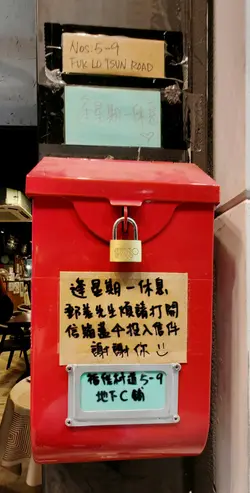 Nos: 5-9
FUK LO TSUN ROAD
逢星期一休息
逢星期一休息
郵差先生煩請打開
信箱蓋令投入信件
謝謝你
福佬村道5-9
地下C鋪